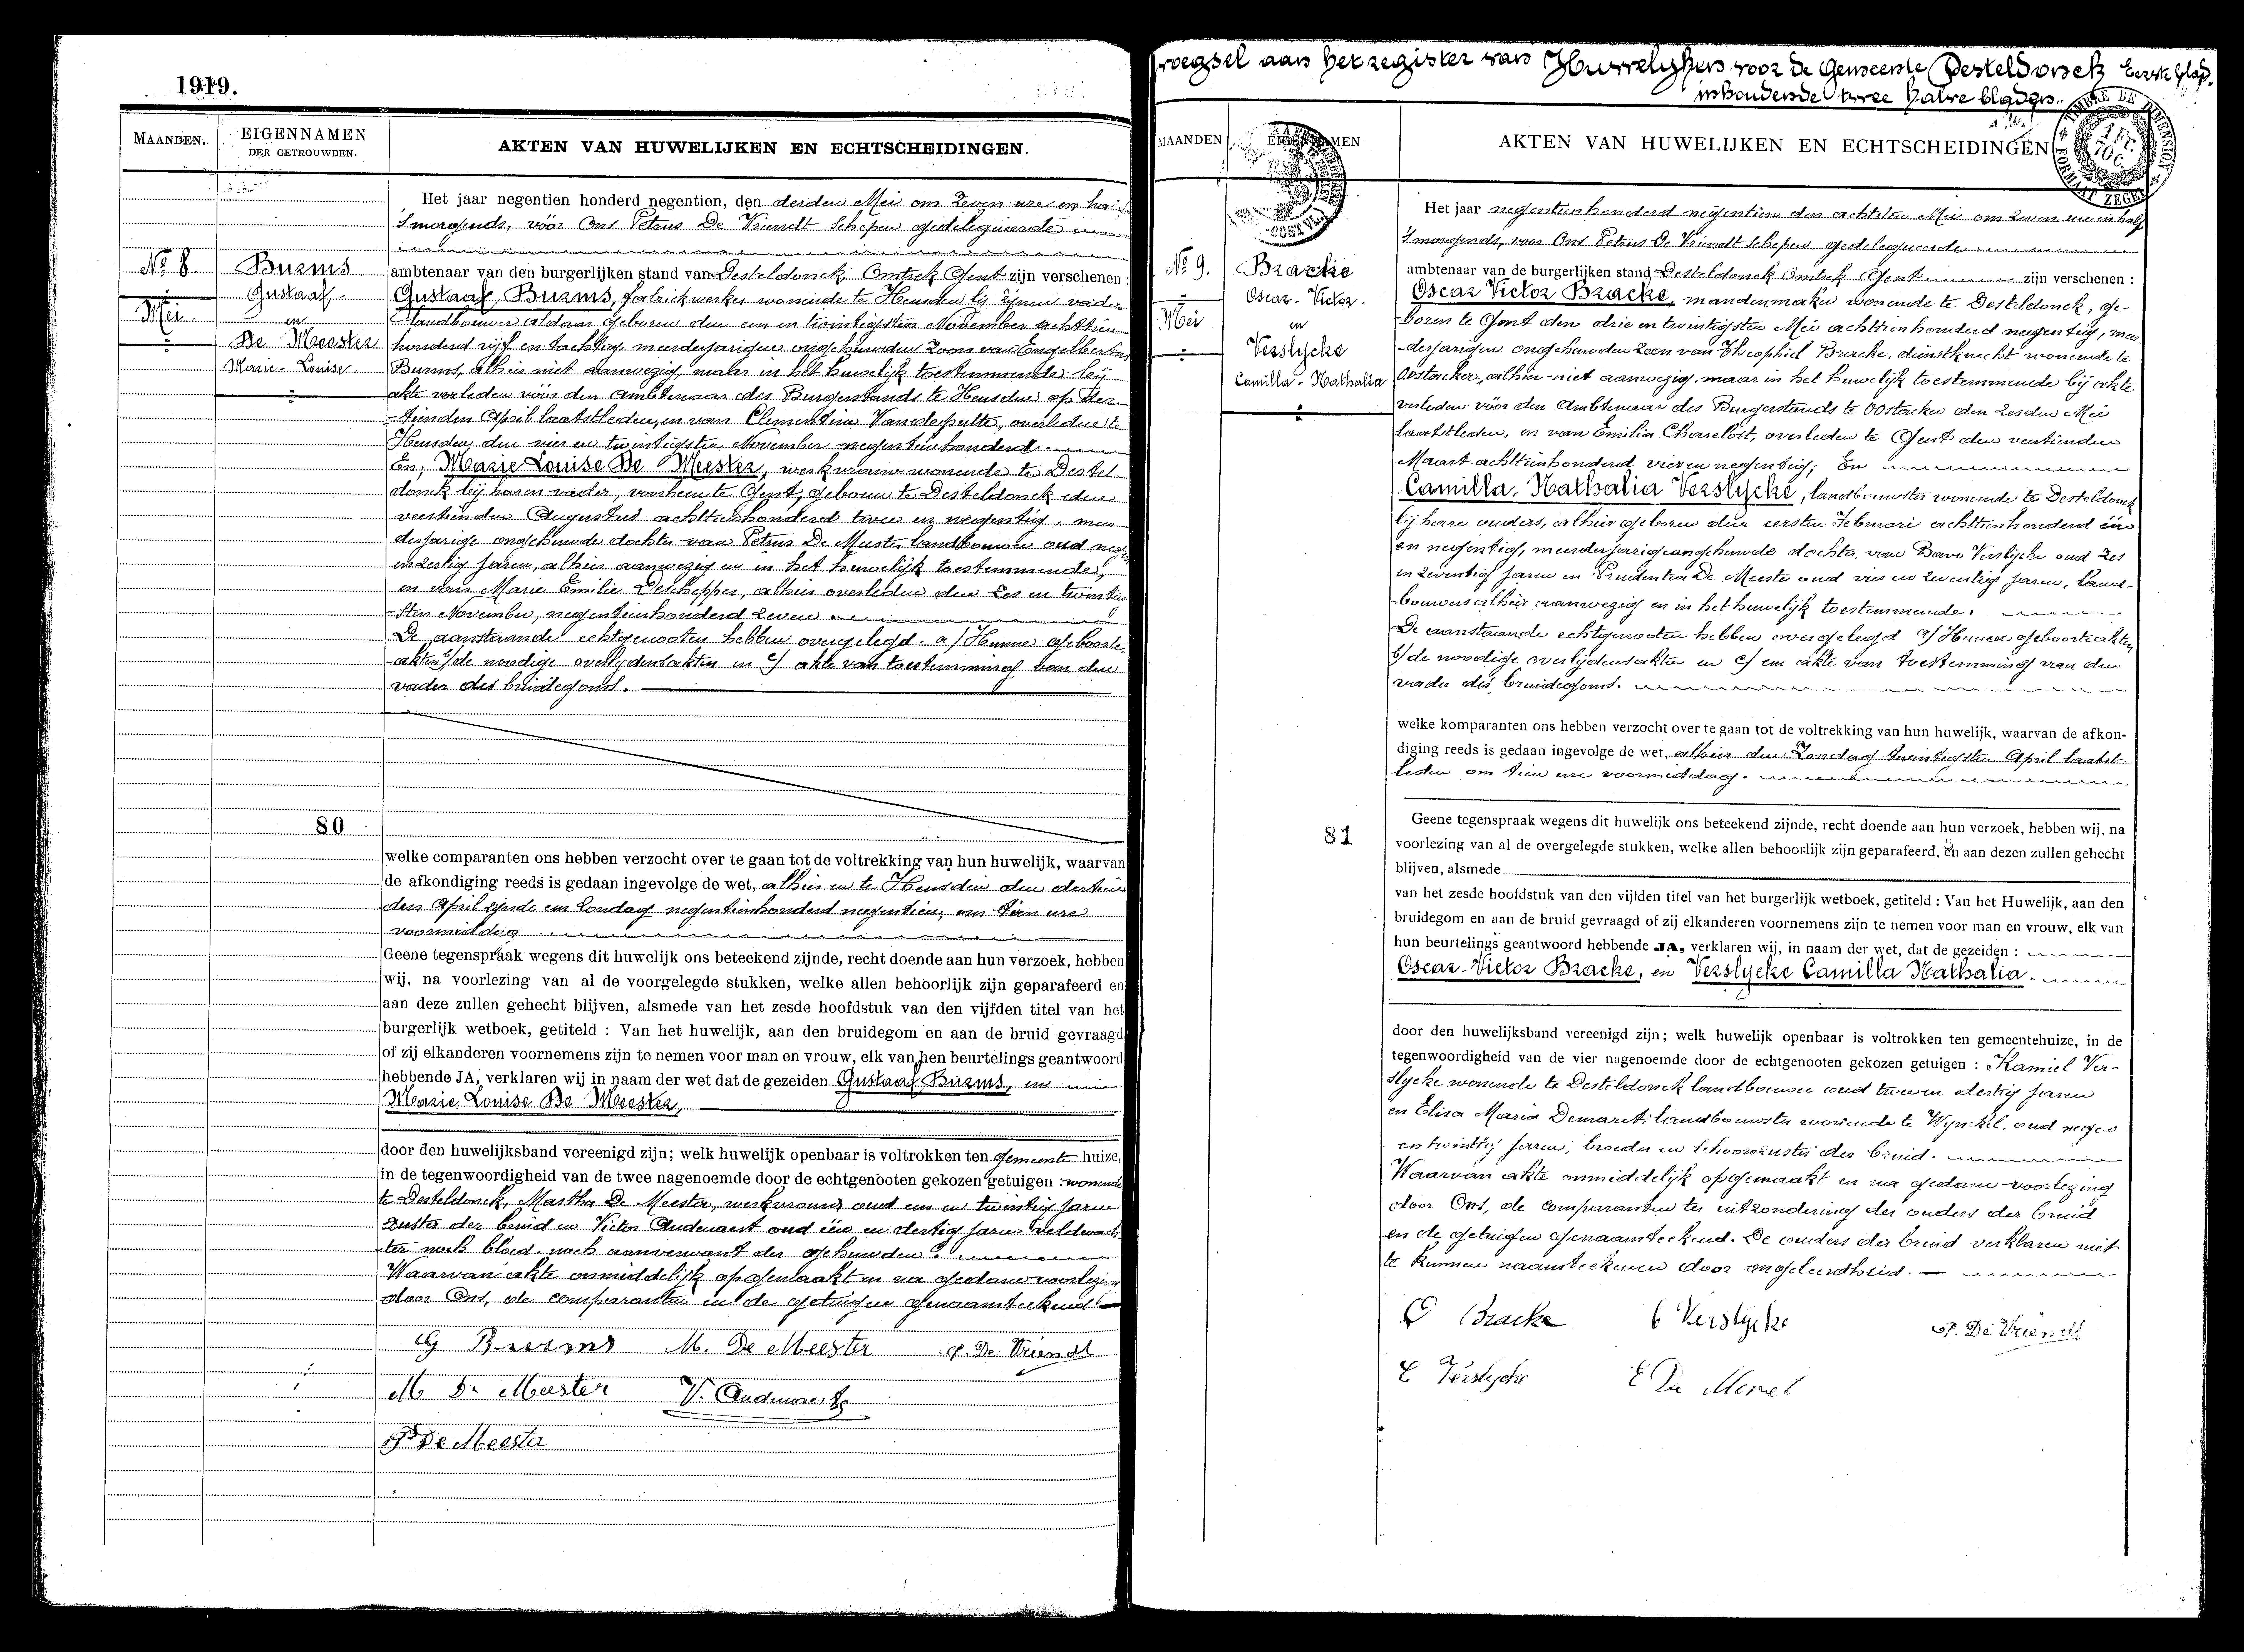 1919.
MAANDEN.
EIGENNAMEN
DER GETROUWDEN.
AKTEN VAN HUWELIJKEN EN ECHTSCHEIDINGEN.
No 8.
Mei
Burms
Gustaaf
en
De Meester
Marie-Louise.
80
Het jaar negentien honderd negentien, den derden Mei om zeven ure en half
's morgends, vóór Ons Petrus De Vriendt Schepen gedelegueerde
ambtenaar van den burgerlijken stand van Desteldonck, Omtrek Gent zijn verschenen :
Gustaaf Burms, fabriekwerker wonende te Heusden bij zijnen vader
landbouwer aldaar geboren den een en twintigsten November achttien
honderd vijf en tachtig meerderjarigen ongehuwden zoon van Engelbertus
Burms, alhier niet aanwezig, maar in het huwelijk toestemmende bij
akte verleden vóór den Ambtenaar des Burgerstands te Heusden op der-
tienden April laatstleden, en van Clementina Vandeputte, overleden te
Heusden den vier en twintigsten November negentienhonderd
En, Marie Louise De Meester, werkvrouw wonende te Destel
donck bij haren vader, voorheen te Gent, geboren te Desteldonck den
veertienden Augustus achttienhonderd twee en negentig, meer
derjarige ongehuwde dochter van Petrus De Meester, landbouwer oud negen
en zestig jaren, alhier aanwezig en in het huwelijk toestemmende,
en van Marie Emilie Deschepper, alhier overleden den zes en twintig
sten November, negentienhonderd zeven
De aanstaande echtgenooten hebben overgelegd. a/ Hunne geboorte-
akten b/ de noodige overlijdensakten en c/ akte van toestemming van den
vader des bruidegoms.
welke comparanten ons hebben verzocht over te gaan tot de voltrekking van hun huwelijk, waarvan
de afkondiging reeds is gedaan ingevolge de wet, alhier en te Heusden den dertien
den April zijnde een Zondag negentienhonderd negentien, om tien ure
voormiddag
Geene tegenspraak wegens dit huwelijk ons beteekend zijnde, recht doende aan hun verzoek, hebben
wij, na voorlezing van al de voorgelegde stukken, welke allen behoorlijk zijn geparafeerd en
aan deze zullen gehecht blijven, alsmede van het zesde hoofdstuk van den vijfden titel van het
burgerlijk wetboek, getiteld : Van het huwelijk, aan den bruidegom en aan de bruid gevraagd
of zij elkanderen voornemens zijn te nemen voor man en vrouw, elk van hen beurtelings geantwoord
hebbende JA, verklaren wij in naam der wet dat de gezeiden Gustaaf Burms, en
Marie Louise De Meester,
door den huwelijksband vereenigd zijn; welk huwelijk openbaar is voltrokken ten gemeente huize,
in de tegenwoordigheid van de twee nagenoemde door de echtgenooten gekozen getuigen : wonende
te Desteldonck, Martha De Meester, werkvrouw oud een en twintig jaren
zuster der bruid en Victor Audenaert oud één en dertig jaren veldwach
ter noch bloed- noch aanverwant der gehuwden.
Waarvan akte onmiddelijk opgemaakt en na gedane voorlezing
door Ons, de comparanten en de getuigen genaamteekend.
G Burms M. De Meester P. De Vriendt
M De Meester V. Audenaert
P De Meester
voegsel aan het register van Huwelijken voor de Gemeente Desteldonck Eerste blad,
inhoudende twee halve bladen.
TIMBRE DE DIMENSION
FORMAAT ZEGEL
MAANDEN
EIGENNAMEN
AKTEN VAN HUWELIJKEN EN ECHTSCHEIDINGEN
No 9.
Mei
Bracke
Oscar-Victor.
en
Verslycke
Camilla-Nathalia
81
Het jaar negentienhonderd negentien den achtsten Mei om zeven ure en half
's morgends, voor Ons Petrus De Vriendt Schepen, gedelegueerde
ambtenaar van de burgerlijken stand Desteldonck Omtrek Gent zijn verschenen :
Oscar Victor Bracke, mandenmaker wonende te Desteldonck, ge-
boren te Gent den drie en twintigsten Mei achttienhonderd negentig, meer
derjarigen ongehuwden zoon van Theophiel Bracke, dienstknecht wonende te
Oostacker, alhier niet aanwezig, maar in het huwelijk toestemmende bij akte
verleden vóór den Ambtenaar des Burgerstands te Oostacker den zesden Mei
laatstleden, en van Emilia overleden te Gent den
Maart achttienhonderd vier en negentig; En
Camilla-Nathalia Verslycke, landbouwster wonende te Desteldonck
bij hare ouders, alhier geboren den eersten Februari achttienhonderd één
en negentig, meerderjarige ongehuwde dochter van Bavo Verslycke oud zes
en zeventig jaren en Prudentia De Meester oud vier en zeventig jaren, land-
bouwers alhier aanwezig en in het huwelijk toestemmende.
De aanstaande echtgenooten hebben overgelegd a/ Hunne geboorteakten
b/ de noodige overlijdensakten en c/ een akte van toestemming van den
vader des bruidegoms.
welke komparanten ons hebben verzocht over te gaan tot de voltrekking van hun huwelijk, waarvan de afkon-
diging reeds is gedaan ingevolge de wet, alhier den Zondag twintigsten April laatst-
leden om tien ure voormiddag.
Geene tegenspraak wegens dit huwelijk ons beteekend zijnde, recht doende aan hun verzoek, hebben wij, na
voorlezing van al de overgelegde stukken, welke allen behoorlijk zijn geparafeerd, en aan dezen zullen gehecht
blijven, alsmede
van het zesde hoofdstuk van den vijfden titel van het burgerlijk wetboek, getiteld : Van het Huwelijk, aan den
bruidegom en aan de bruid gevraagd of zij elkanderen voornemens zijn te nemen voor man en vrouw, elk van
hun beurtelings geantwoord hebbende JA, verklaren wij, in naam der wet, dat de gezeiden :
Oscar-Victor Bracke, en Verslycke Camilla Nathalia.
door den huwelijksband vereenigd zijn; welk huwelijk openbaar is voltrokken ten gemeentehuize, in de
tegenwoordigheid van de vier nagenoemde door de echtgenooten gekozen getuigen : Kamiel Ver-
slycke wonende te Desteldonck landbouwer oud twee en dertig jaren
en Elisa Maria landbouwster wonende te Wynckel, oud negen
en twintig jaren, broeder en schoonzuster der bruid.
Waarvan akte onmiddelijk opgemaakt en na gedane voorlezing
door Ons, de comparanten ter uitzondering der ouders der bruid
en de getuigen genaamteekend. De ouders der bruid verklaren niet
te kunnen naamteekenen door ongeleerdheid.
O Bracke C Verslycke P. De Vriendt
C Verslycke E